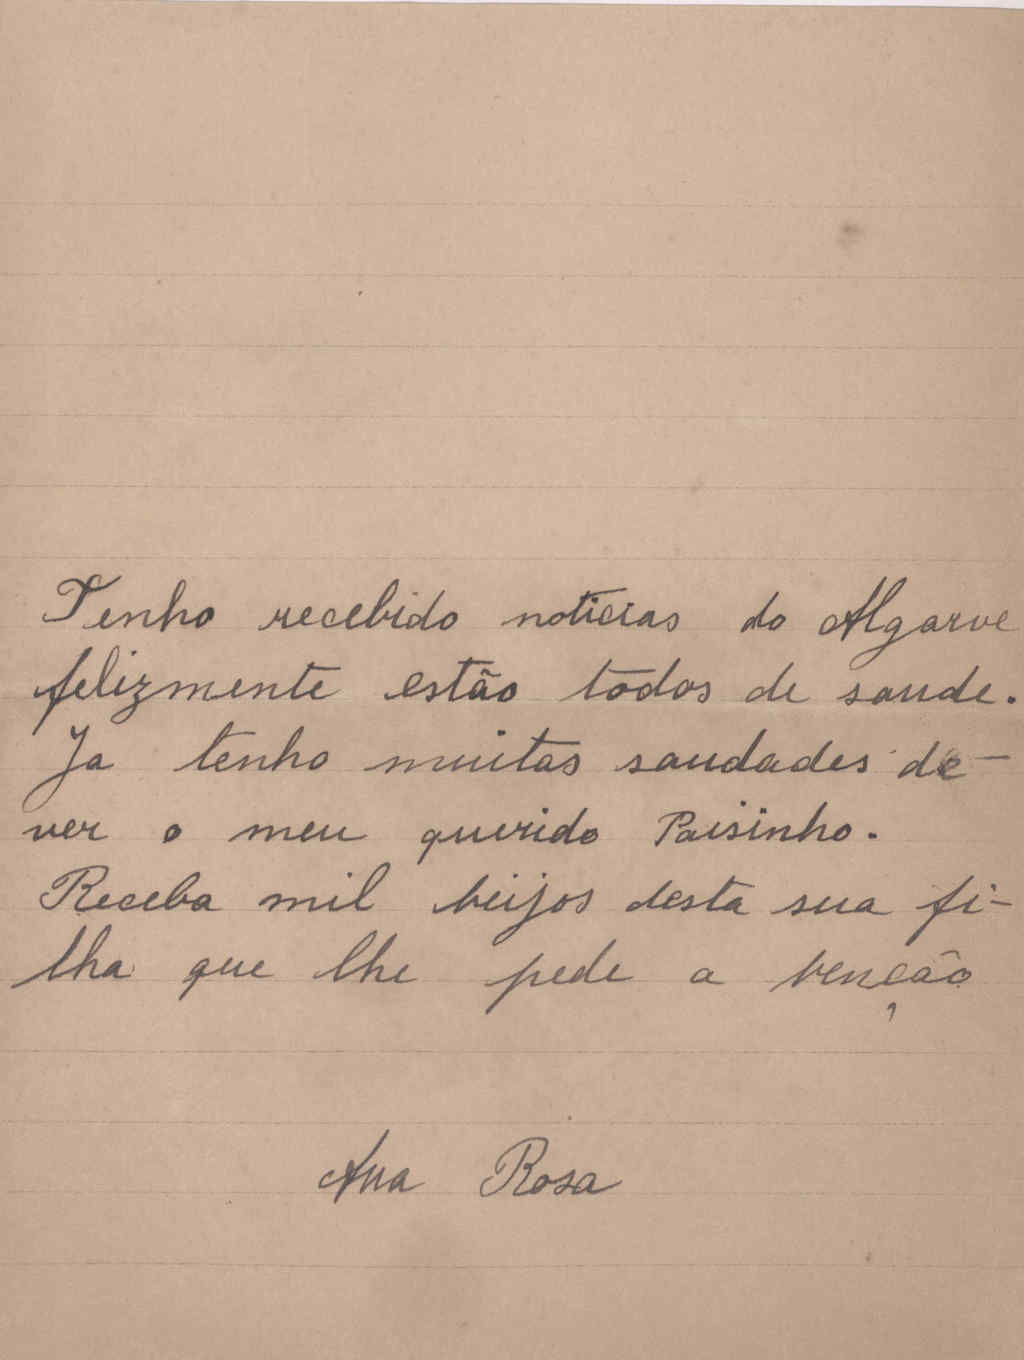 Tenho recebido noticias do Algarve
felizmente estão todos de saude.
Ja tenho muitas saudades de-
ver o meu querido Paisinho.
Receba mil beijos desta sua fi-
lha que lhe pede a benção
Ana Rosa